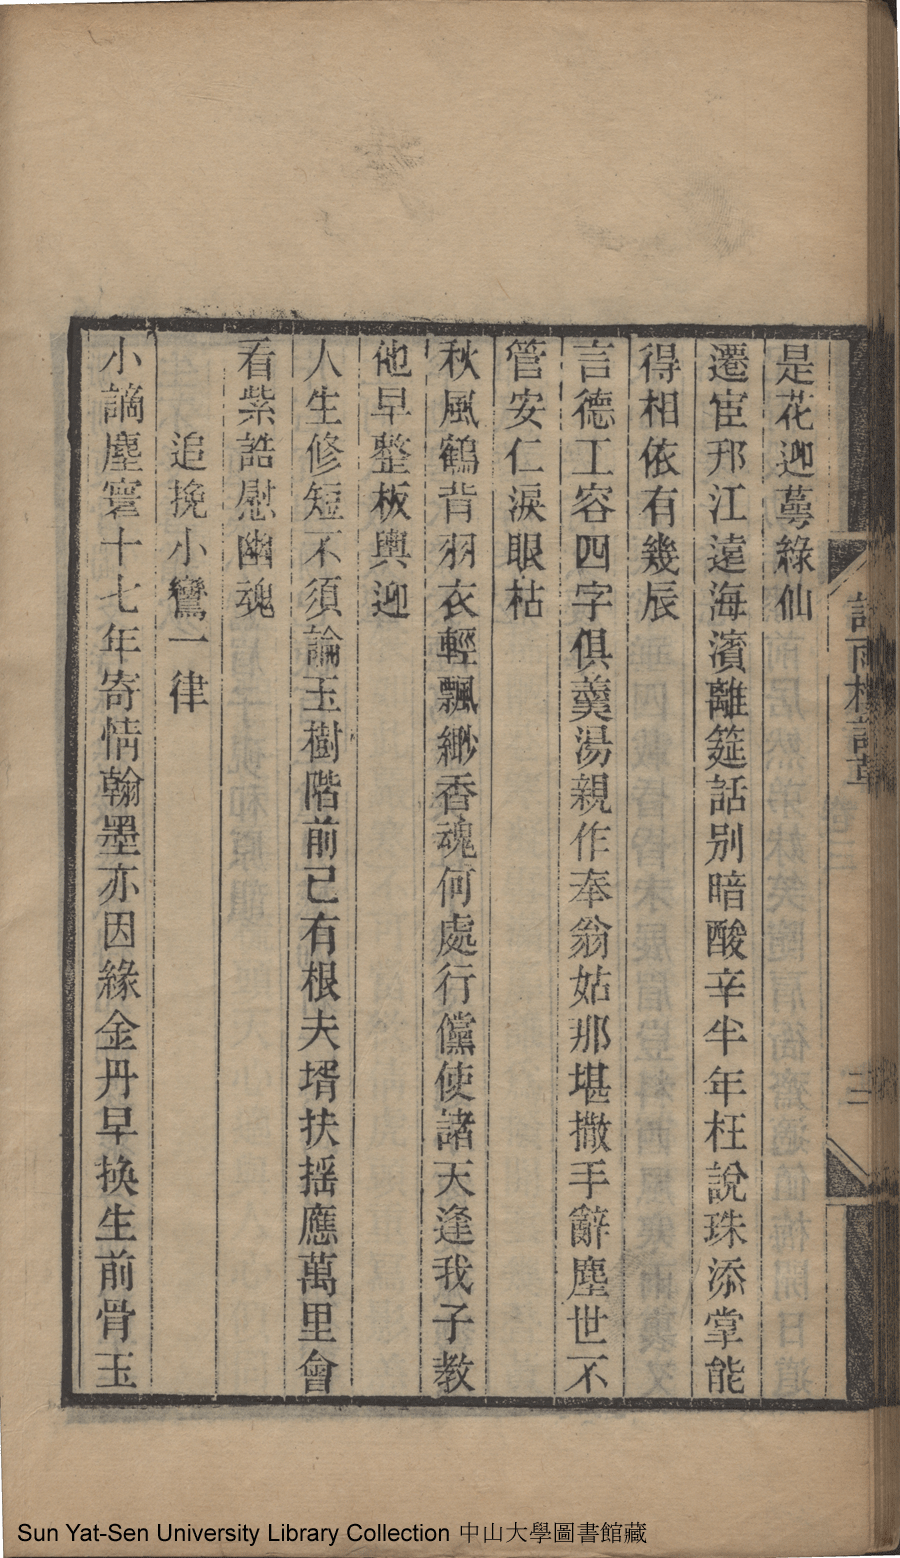 是花迎萼綠仙
遷宦邗江遠海濱離筵話別暗酸辛半年枉說珠添掌能
得相依有幾辰
言德工容四字俱羹湯親作奉翁姑那堪撒手辭塵世不
管安仁淚眼枯
秋風鶴背羽衣輕飄緲香魂何處行儻使諸天逢我子教
他早整板輿迎
人生修短不須論玉樹階前已有根夫壻扶摇應萬里會
看紫誥慰幽魂
追挽小鸞一律
小謫塵寰十七年寄情翰墨亦因緣金丹早換生前骨玉
Sun Yat-Sen University Library Collection 中山大學圖書館藏